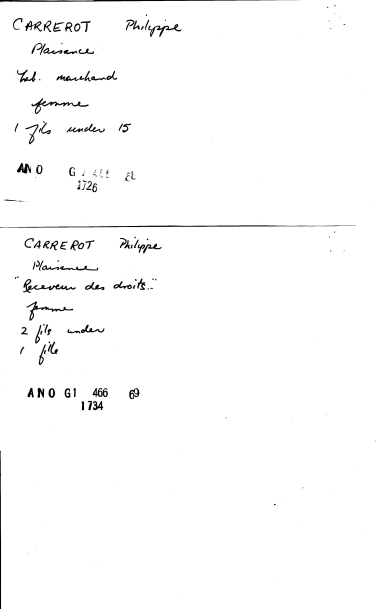 CARREROT Philippe
Plaisance
hab. marchand
femme
1 fils under 15
ANO G 1 466
1726
CARREROT Philippe
Plaisance
"Receveur des droits"
femme
2 fils under
1 fille
ANO G1 466 69
1734